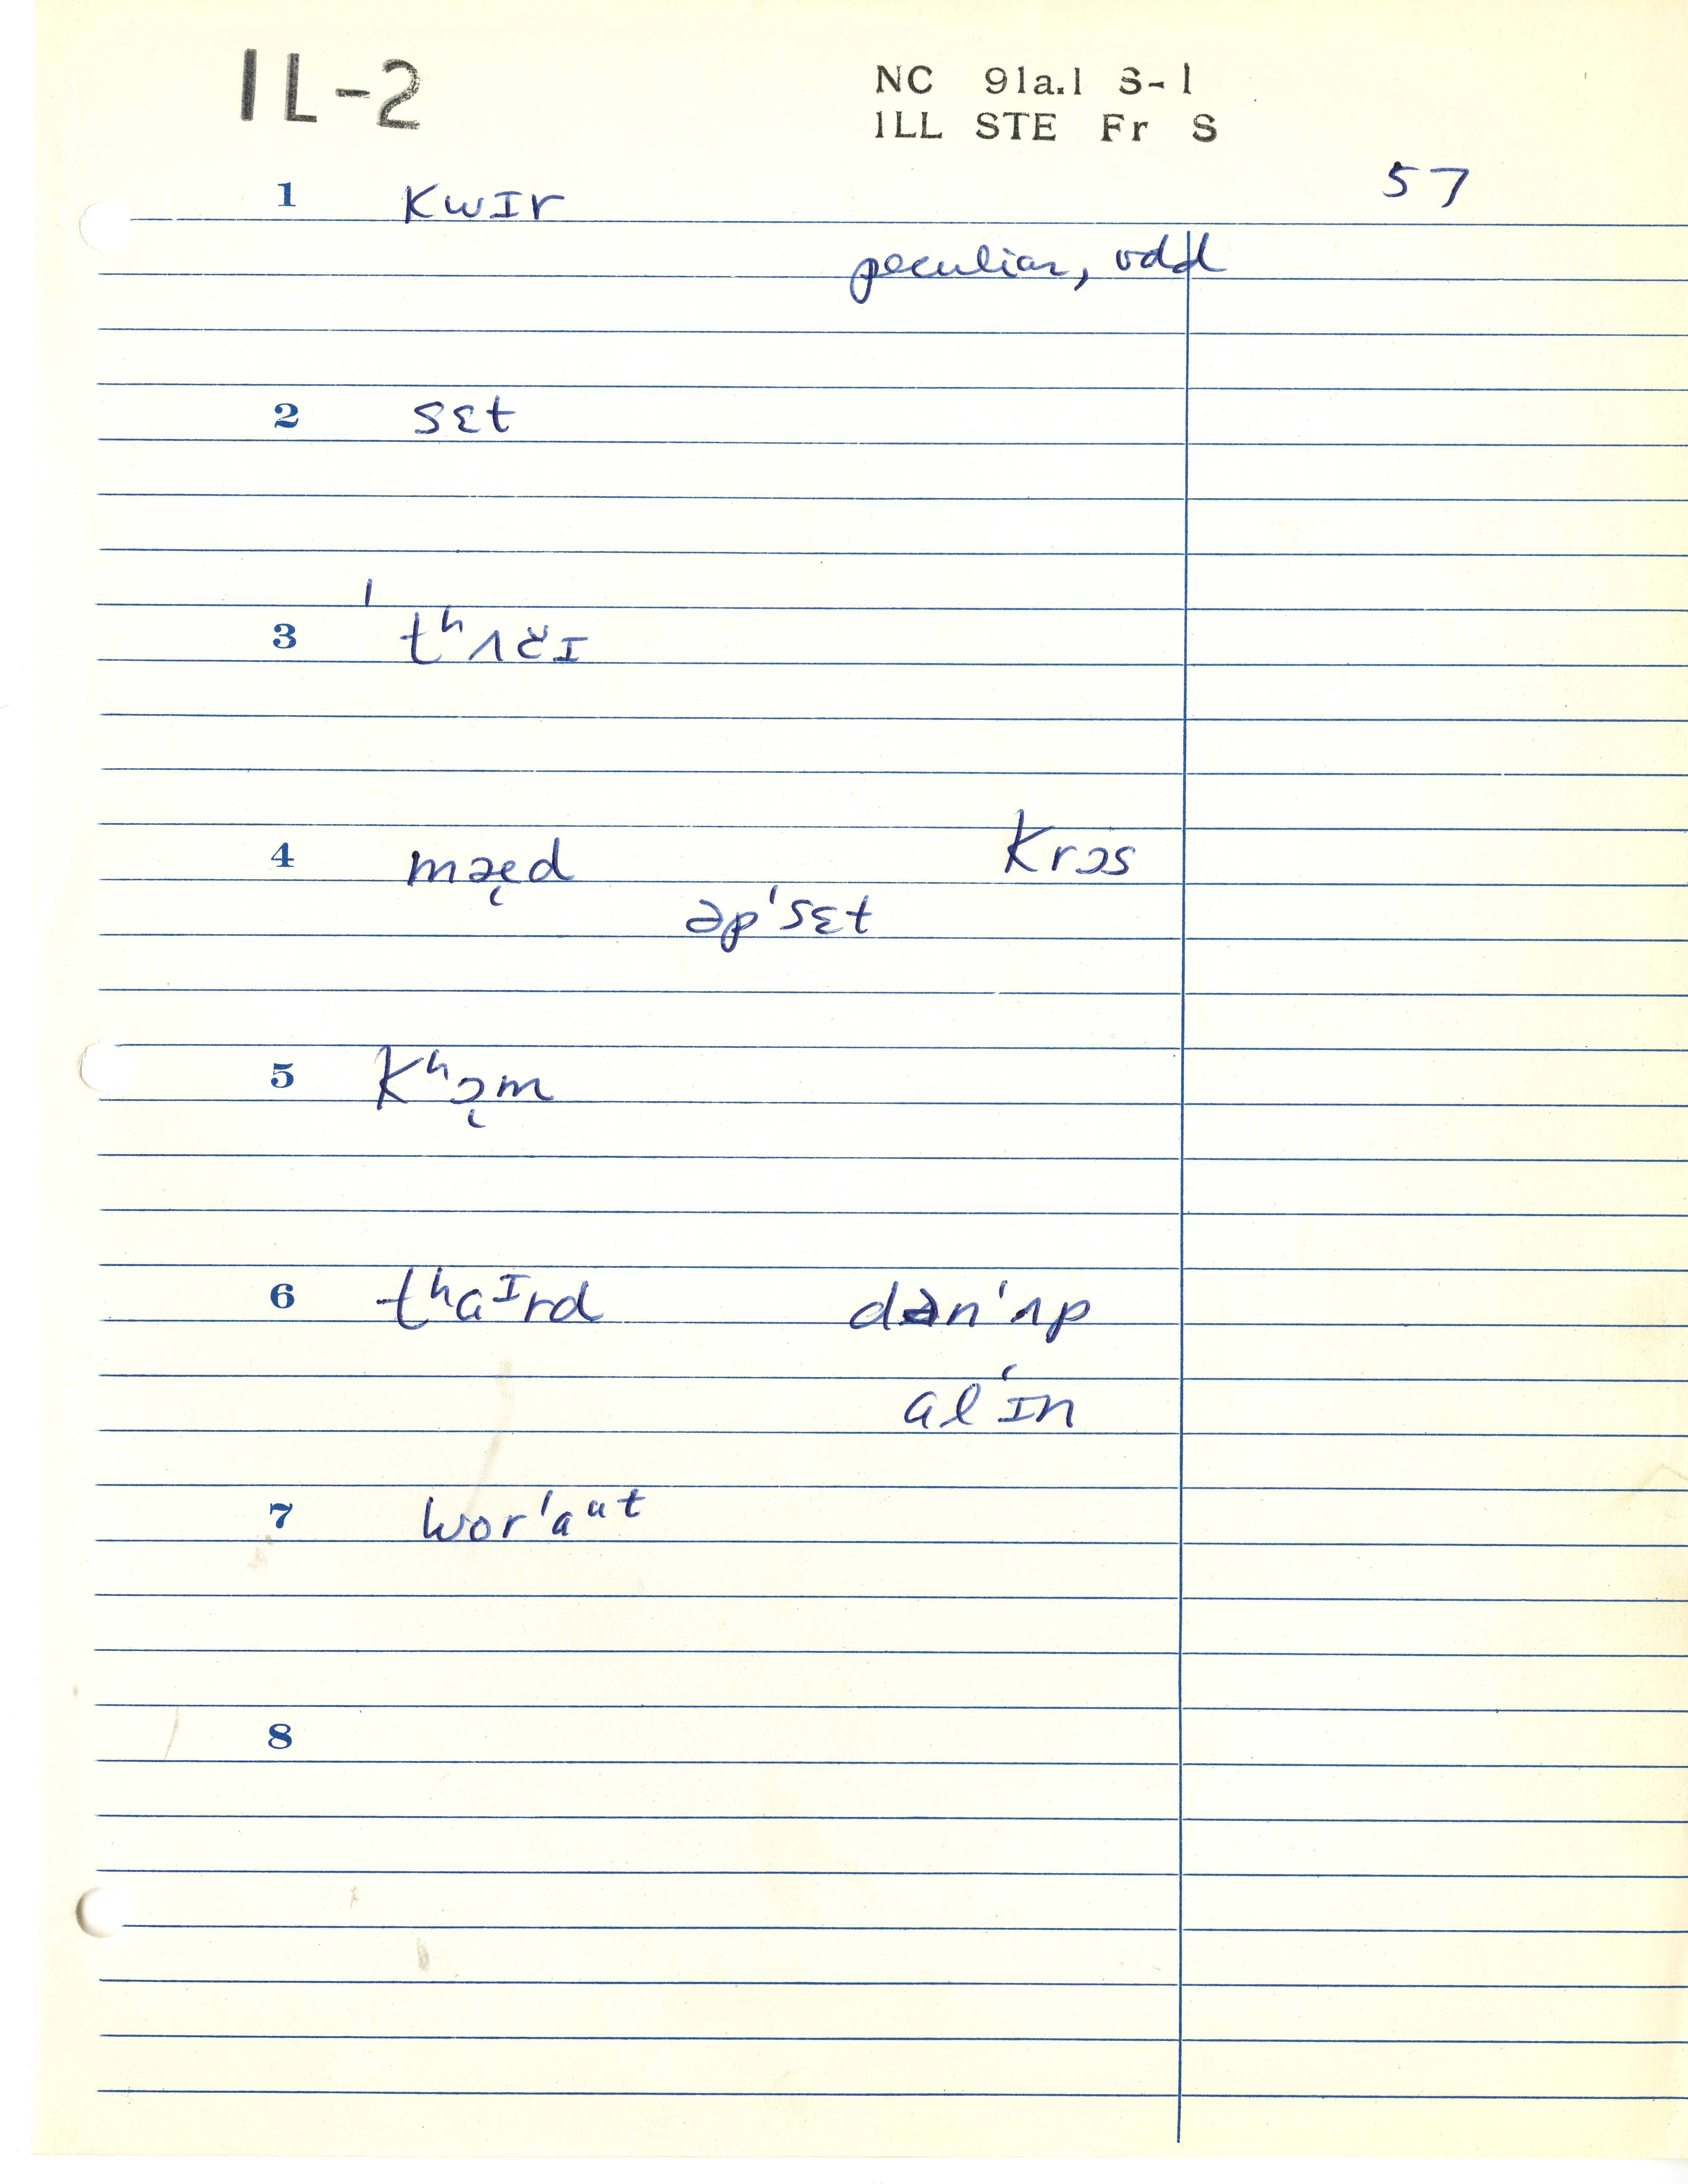 IL-2
NC 91a.1 S-1
ILL STE Fr S
57
1 kwɪr
peculiar, odd
2 sɛt
3 ˈtʰʌtʃɪ
4 mæ̨d krɔs
əpˈsɛt
5 kʰɔ̨m
6 tʰɑᶦrd dənˈʌp
alˈɪn
7 worˈaᵘᵗ
8